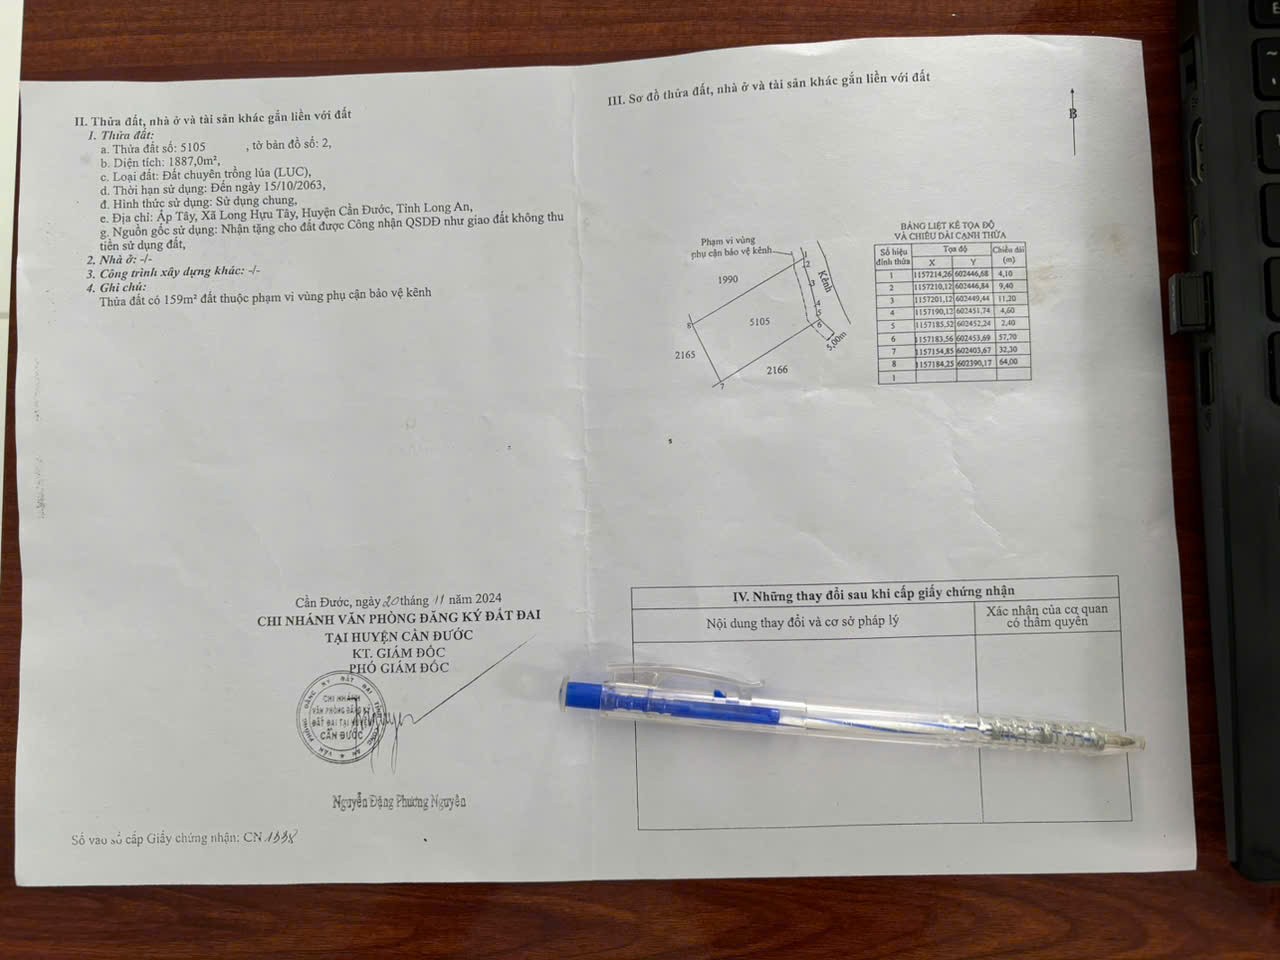 II. Thửa đất, nhà ở và tài sản khác gắn liền với đất
1. Thửa đất:
a. Thửa đất số: 5105 , tờ bản đồ số: 2,
b. Diện tích: 1887,0m²,
c. Loại đất: Đất chuyên trồng lúa (LUC),
d. Thời hạn sử dụng: Đến ngày 15/10/2063,
đ. Hình thức sử dụng: Sử dụng chung,
e. Địa chỉ: Ấp Tây, Xã Long Hựu Tây, Huyện Cần Đước, Tỉnh Long An,
g. Nguồn gốc sử dụng: Nhận tặng cho đất được Công nhận QSDĐ như giao đất không thu
tiền sử dụng đất,
2. Nhà ở: -/-
3. Công trình xây dựng khác: -/-
4. Ghi chú:
Thửa đất có 159m² đất thuộc phạm vi vùng phụ cận bảo vệ kênh
Cần Đước, ngày 20 tháng 11 năm 2024
CHI NHÁNH VĂN PHÒNG ĐĂNG KÝ ĐẤT ĐAI
TẠI HUYỆN CẦN ĐƯỚC
KT. GIÁM ĐỐC
PHÓ GIÁM ĐỐC
CHI NHÁNH
VĂN PHÒNG ĐĂNG KÝ
ĐẤT ĐAI TẠI HUYỆN
CẦN ĐƯỚC
Nguyễn Đặng Phương Nguyên
Số vào sổ cấp Giấy chứng nhận: CN 1338
III. Sơ đồ thửa đất, nhà ở và tài sản khác gắn liền với đất
B
Phạm vi vùng
phụ cận bảo vệ kênh
1990
Kênh
1
2
3
4
5
6
5105
8
2165
5,00m
2166
7
BẢNG LIỆT KÊ TỌA ĐỘ
VÀ CHIỀU DÀI CẠNH THỬA
Số hiệu đỉnh thửa Tọa độ Chiều dài (m)
X Y
1 1157214,26 602446,68 4,10
2 1157210,12 602446,84 9,40
3 1157201,12 602449,44 11,20
4 1157190,12 602451,74 4,60
5 1157185,52 602452,24 2,40
6 1157183,56 602453,69 57,70
7 1157154,85 602403,67 32,30
8 1157184,25 602390,17 64,00
1
IV. Những thay đổi sau khi cấp giấy chứng nhận
Nội dung thay đổi và cơ sở pháp lý
Xác nhận của cơ quan
có thẩm quyền